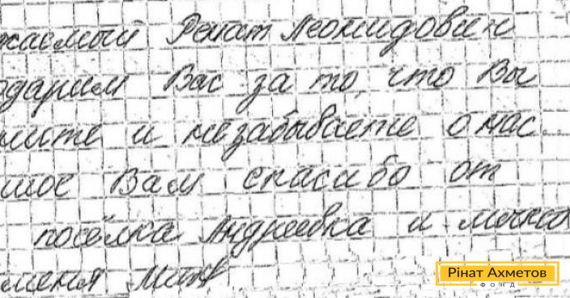 жаемый Ренат Леонидович
одарим Вас за то, что Вы
ните и незабываете о нас.
шое Вам спасибо от
посёлка Андреевка и
меня
Рінат Ахметов
ФОНД